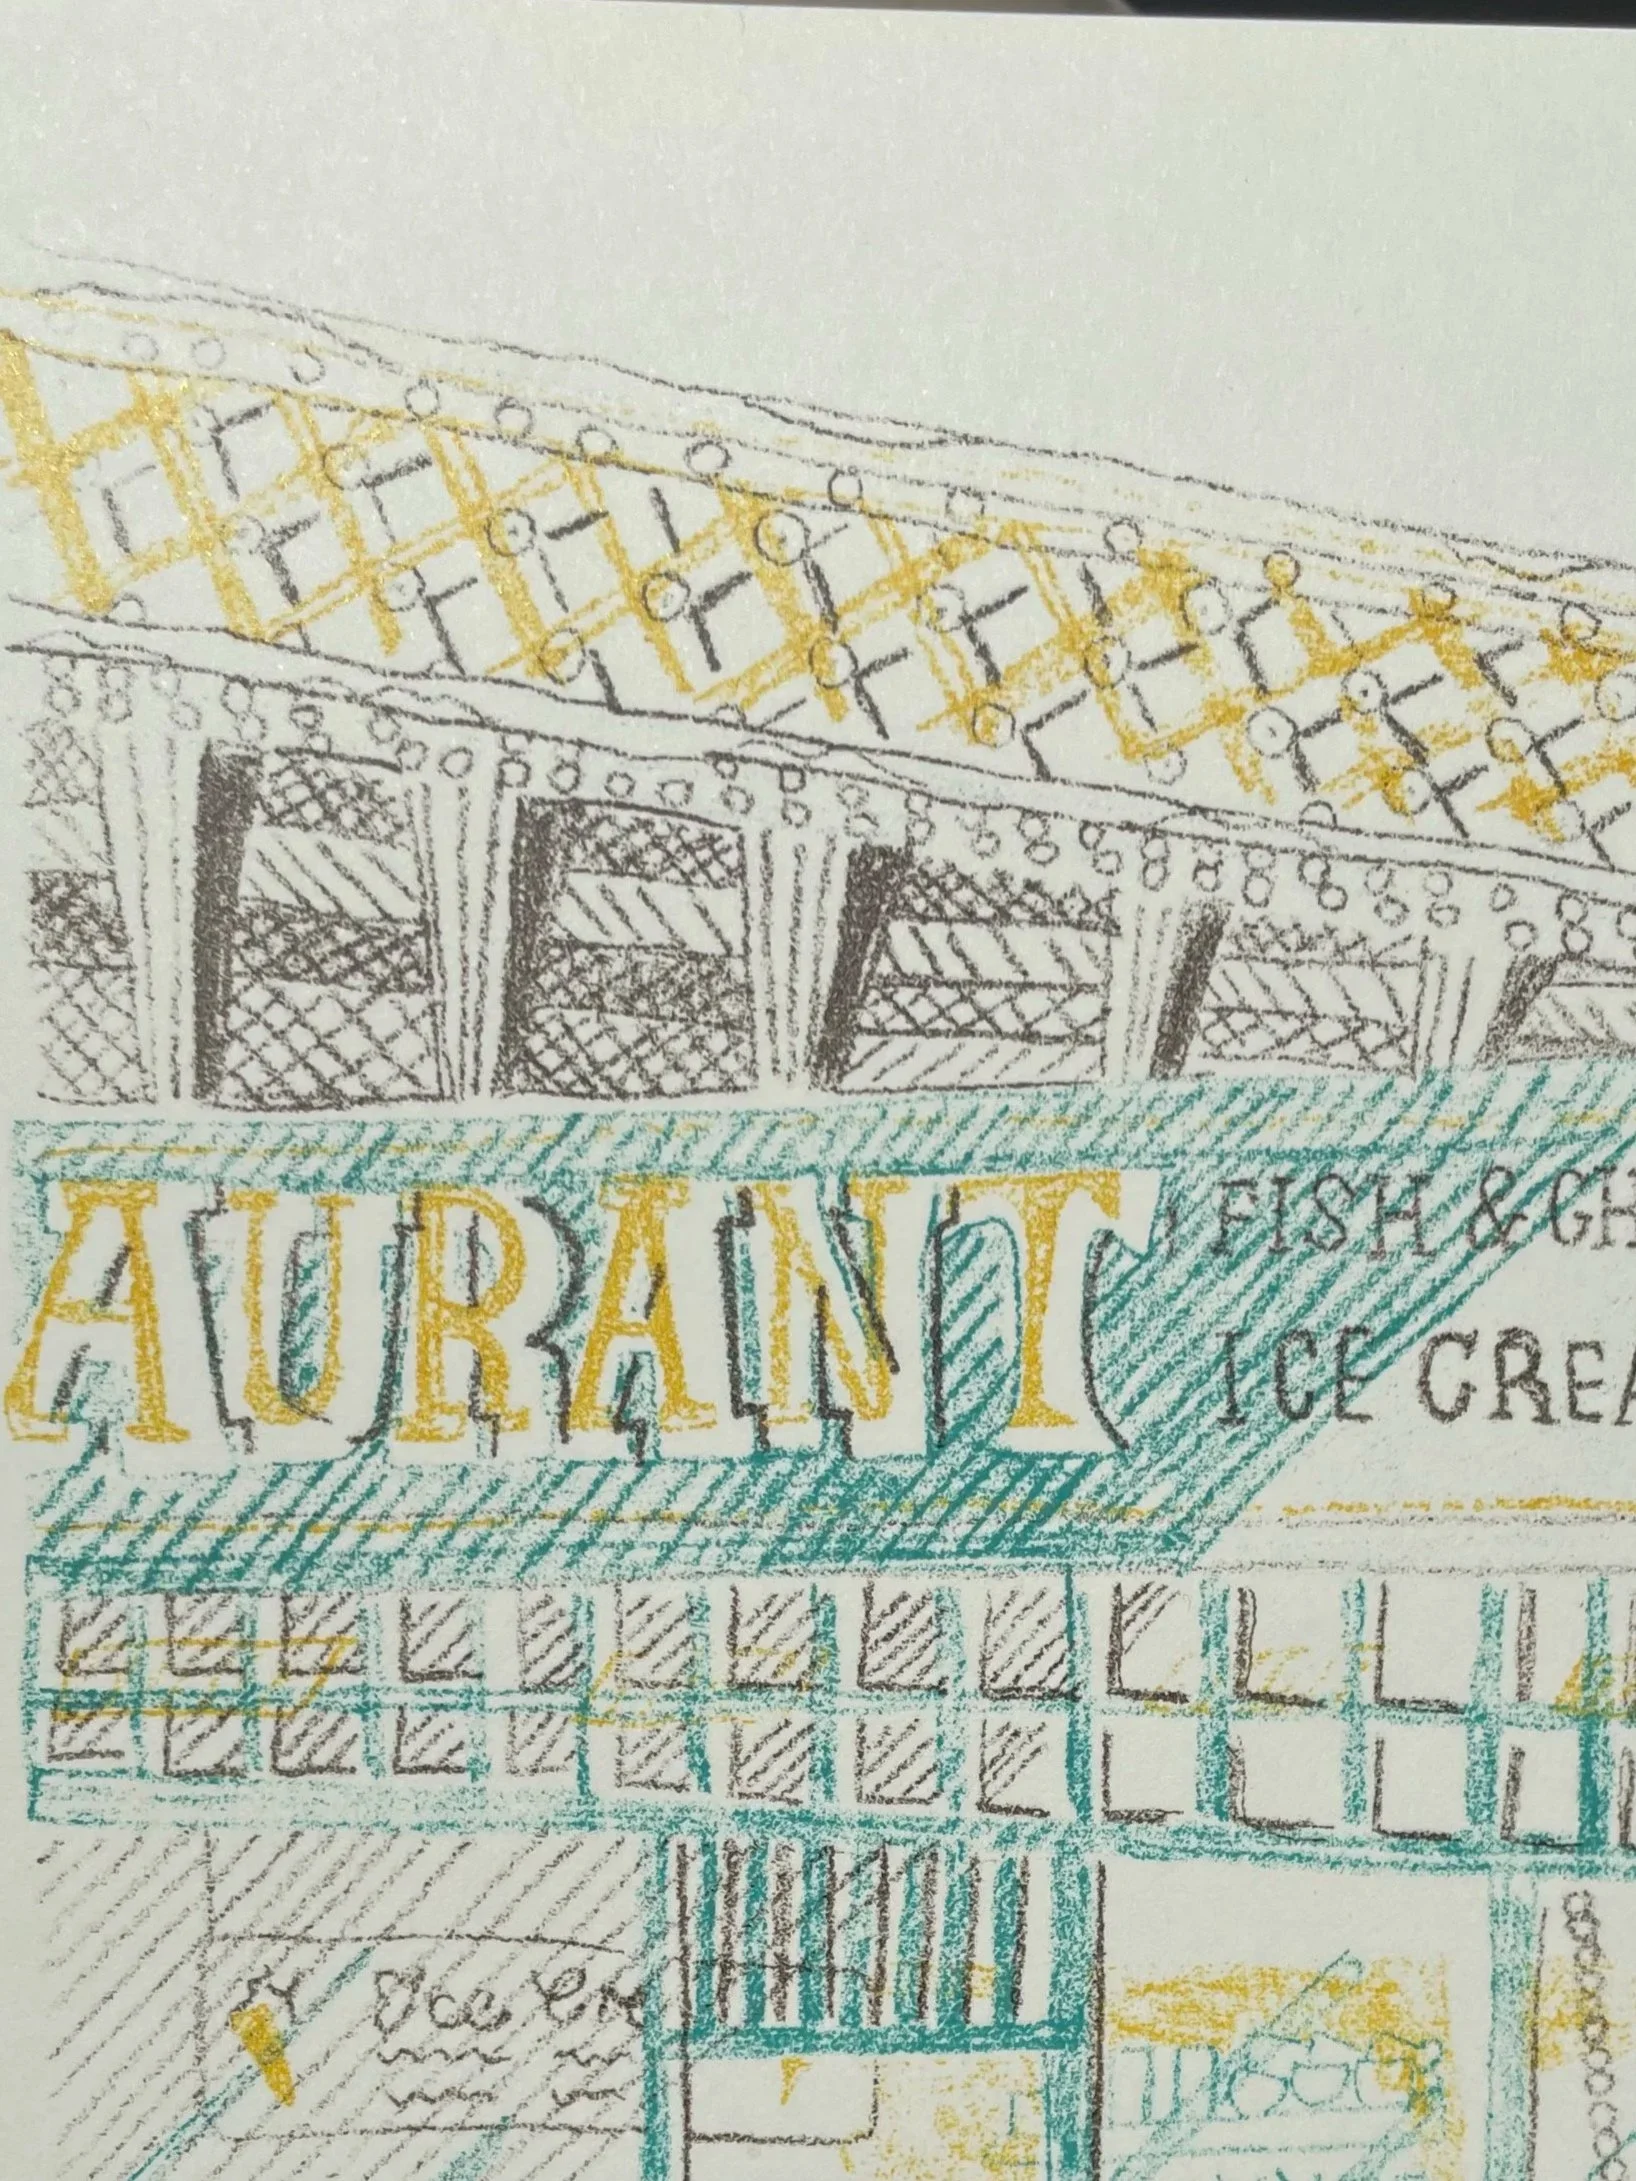 AURANT
FISH & CH
ICE CREA
Ice Cre